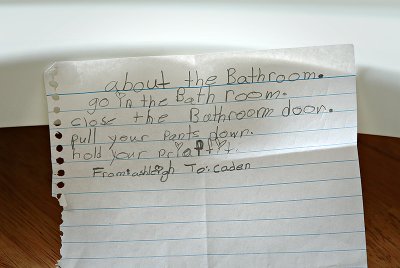 about the Bathroom.
go in the Bath room.
close the Bathroom door.
pull your pants down.
hold your
From: ashleigh To: caden